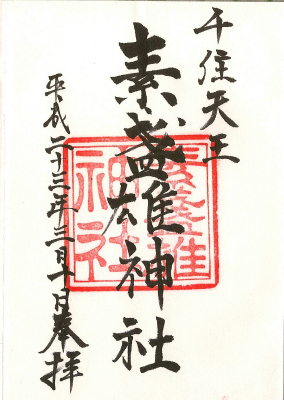 千住天王
素盞雄神社
平成二十三年三月十日奉拝
素盞雄
神社